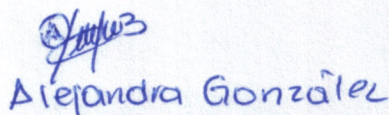 Alejandra González